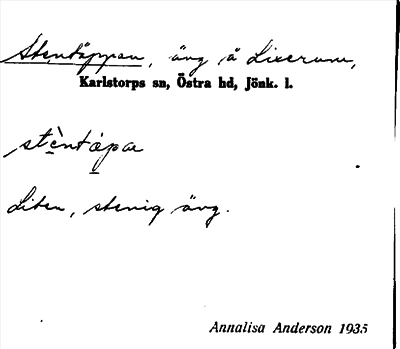 Stentäppan, äng å Lixerum,
Karlstorps sn, Östra hd, Jönk. l.
stèntæpa
Liten, stenig äng.
Annalisa Anderson 1935